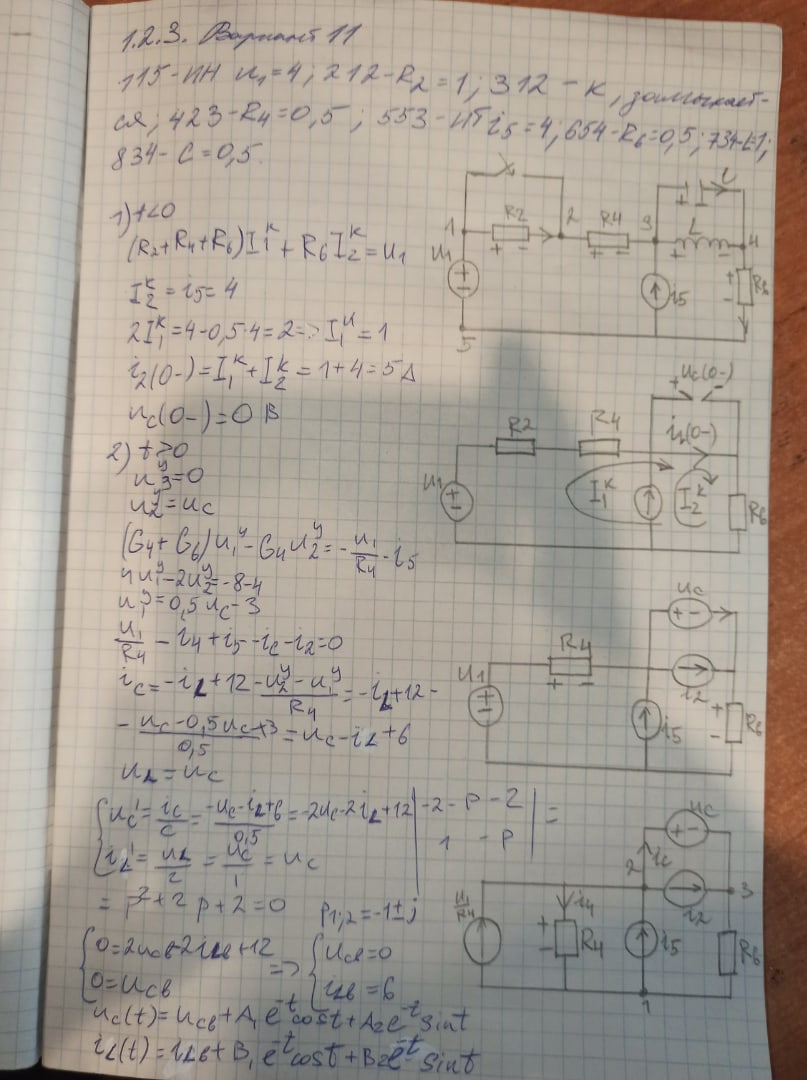 1.2.3. Вариант 11
115-ИН u₁=4; 212-R₂=1; 312 - К, замыкает-
ся; 423-R4=0,5; 553-ИТ i5=4; 654-R6=0,5; 734-L=1;
834-C=0,5.
1) t<0
(R2+R4+R6)I₁ᴷ + R6I₂ᴷ = u₁
I₂ᴷ = i5 = 4
2I₁ᴷ = 4-0,5·4 = 2 => I₁ᴷ = 1
i₂(0-) = I₁ᴷ + I₂ᴷ = 1+4 = 5 А
uc(0-) = 0 В
2) t≥0
u₃ʸ = 0
u₂ʸ = uc
(G4+G6)u₁ʸ - G4u₂ʸ = -u₁/R4 - i5
4u₁ʸ - 2u₂ʸ = -8-4
u₁ʸ = 0,5uc - 3
u₁/R4 - i4 + i5 - ic - i2 = 0
ic = -iL + 12 - (u₂ʸ - u₁ʸ)/R4 = -iL + 12 -
- (uc - 0,5uc + 3)/0,5 = uc - iL + 6
uL = uc
uc' = ic/C = (-uc - iL + 6)/0,5 = -2uc - 2iL + 12 | -2-p -2 |
iL' = uL/2 = uc/1 = uc | 1 -p | =
= p² + 2p + 2 = 0 p1,2 = -1±j
0 = 2ucв - 2iLв + 12 => ucв = 0
0 = ucв iLв = 6
uc(t) = ucв + A₁e⁻ᵗcost + A2e⁻ᵗsint
iL(t) = iLв + B₁e⁻ᵗcost + B2e⁻ᵗsint
C
1 R2 2 R4 3 L 4
u1 + - + - + -
i5 R6
5
+ uc(0-) -
R2 R4 i2(0-)
u1 I₁ᴷ I₂ᴷ R6
uc
+ -
R4 i2
u1 + -
i5 R6
uc
+ -
2 ic
i2 3
u1/R4 i4 R4 i5 R6
1